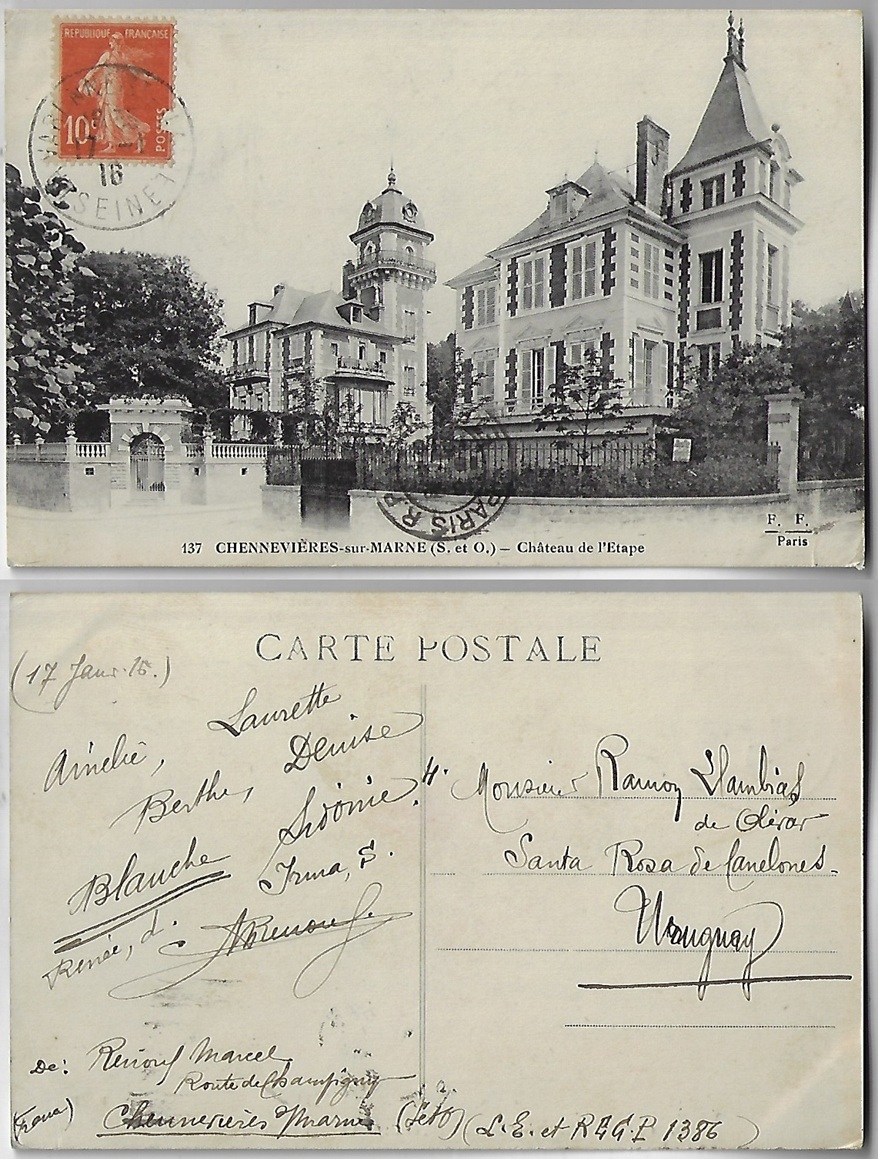 REPUBLIQUE FRANÇAISE
10c
POSTES
17
16
SEINE
PARIS R.P.
137 CHENNEVIÈRES-sur-MARNE (S. et O.) – Château de l'Etape
F. F.
Paris
CARTE POSTALE
(17 Janv. 16.)
Laurette
Amelie,
Denise
Berthe,
Sidonie.
Blanche
Irma, S.
Renée, d.
ARenouf.
4. Monsieur Ramon Llambias
de Olivar
Santa Rosa de Canelones.
Uruguay
De: Renouf Marcel
Route de Champigny
Chennevières s/Marne (S et O)
(France)
(L. E. et REG. P 1386)